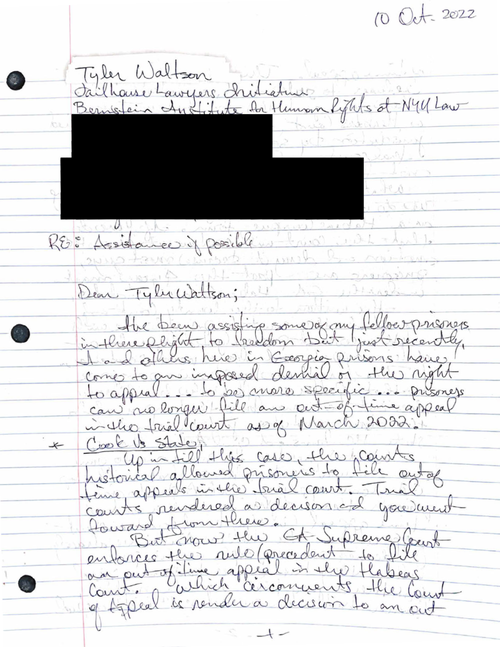 10 Oct. 2022
Tyler Waltson
Jailhouse Lawyers Initiative
Bernstein Institute for Human Rights at NYU Law
RE: Assistance if possible
Dear Tyler Wattson;
I've been assisting some of my fellow prisoners
in there plight to freedom but just recently,
I and others here in Georgia prisons have
come to an imposed denial of the right
to appeal.... to be more specific... prisoners
can no longer file an out-of-time appeal
in the trial court as of March 2022.
* Cook vs State,
Up in till this case, the courts
historical allowed prisoners to file out of
time appeals in the trial court. Trial
courts rendered a decision and you went
foward from there.
But now the GA Supreme Court
enforces the rule/precedent to file
an out of time appeal in the Habeas
Court. Which circumvents the Court
of Appeal is render a decision to an out
-1-